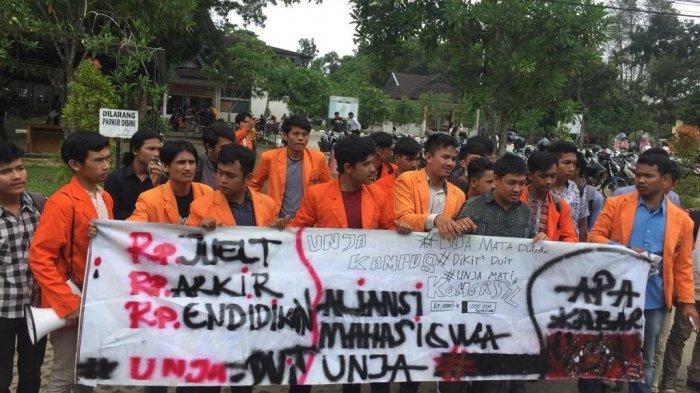 DILARANG
PARKIR DISINI
Rp. JUELT
Rp. ARKIR
RP. ENDIDIKAN
# UNJA = DUIT
UNJA
KAMPUS
KOMERSIL
# UNJA MATA DUITAN
# DIKIT² DUIT
# UNJA MATI
ALIANSI
MAHASISWA
UNJA
APA
KABAR